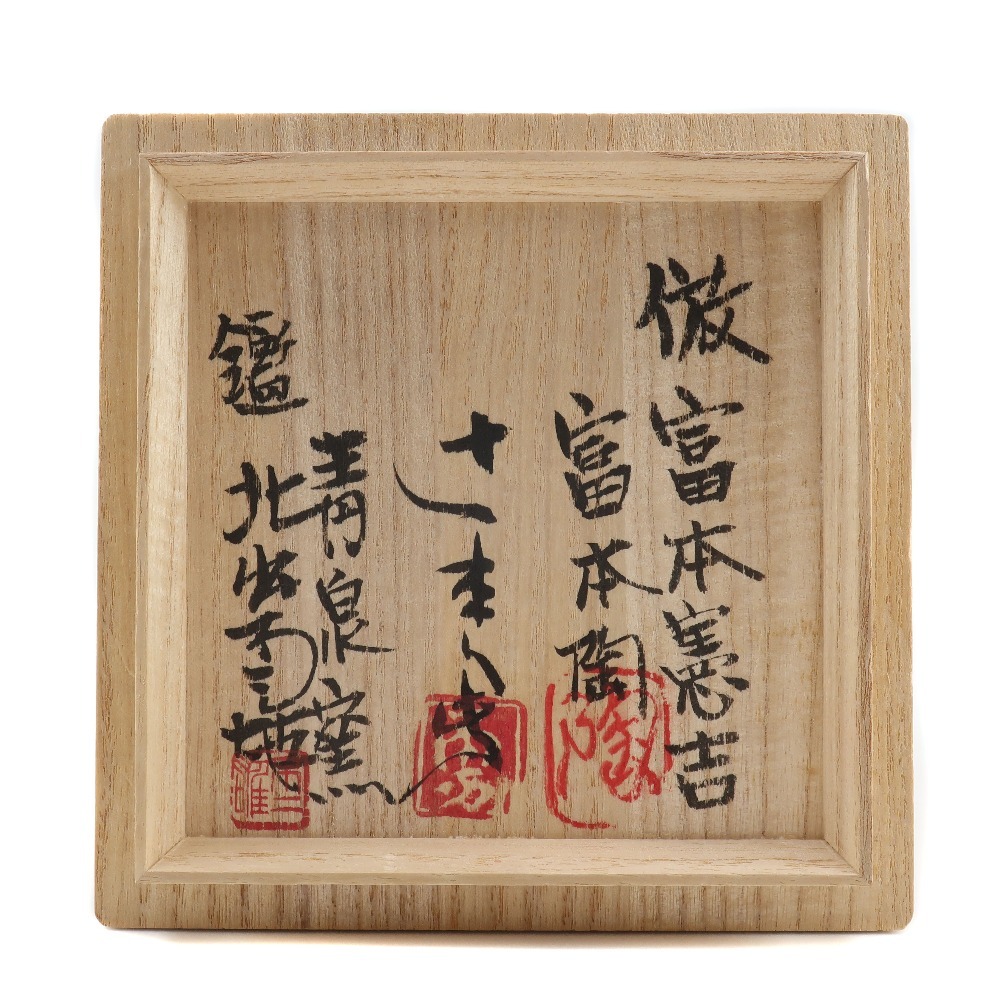 倣富本憲吉
富本陶
辻本勇
青泉窯
鑑 北出不二雄